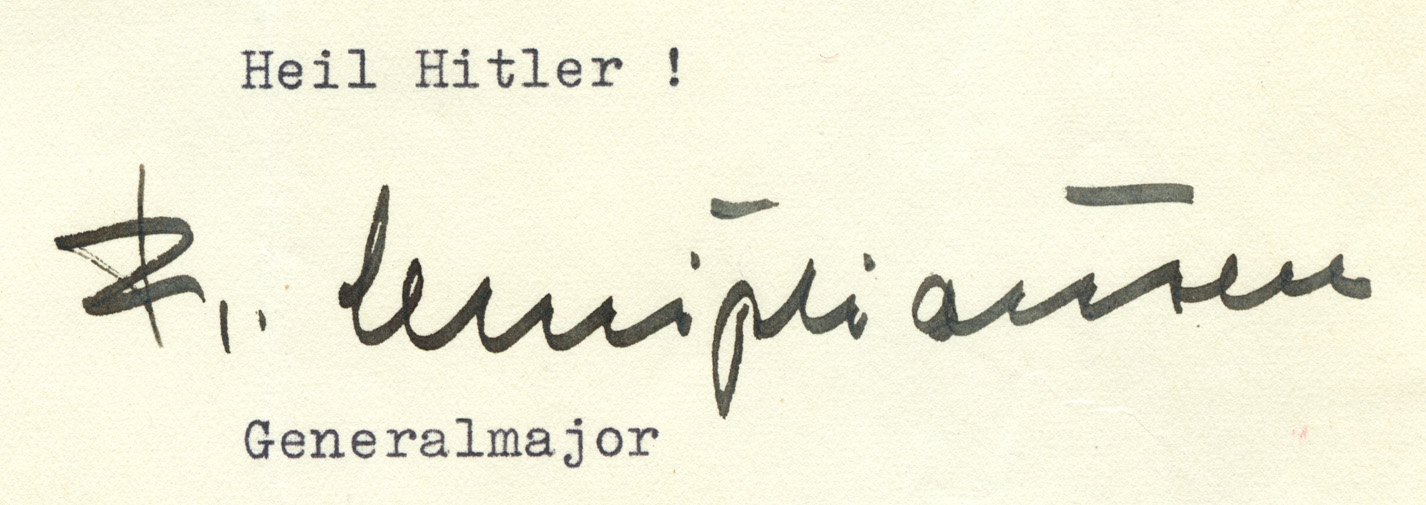 Heil Hitler !
Generalmajor